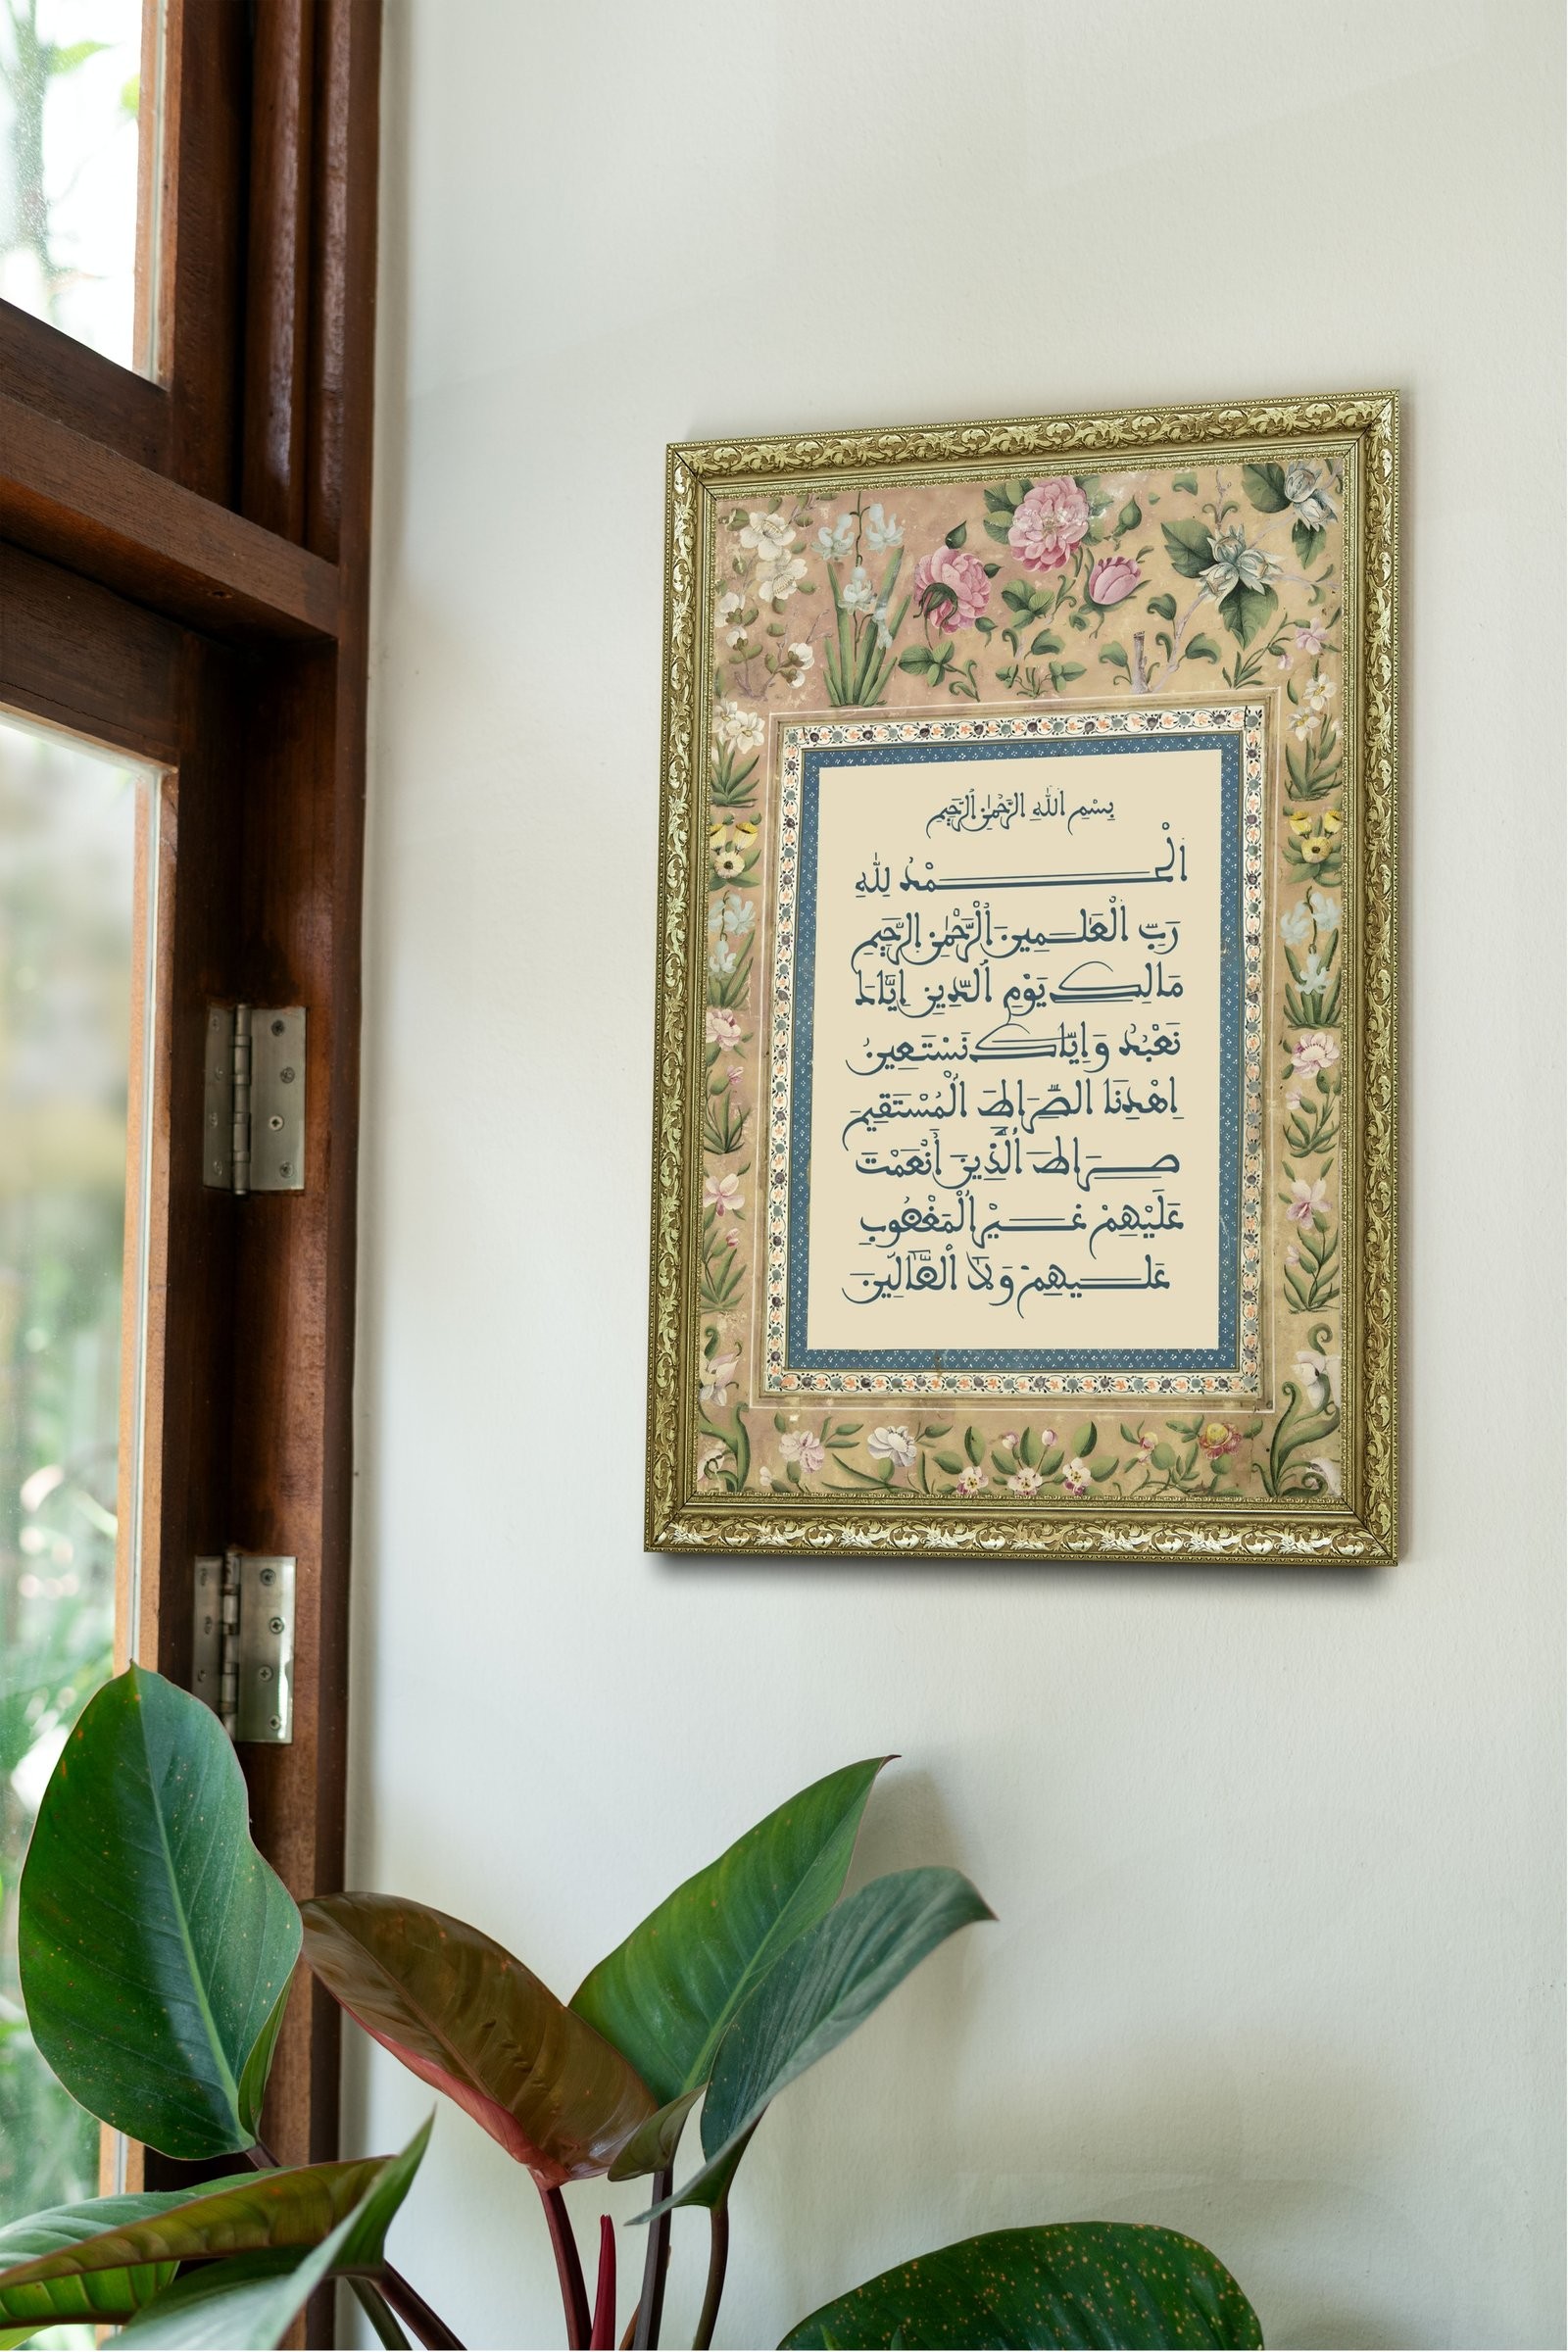 بِسْمِ اللهِ الرَّحْمٰنِ الرَّحِيمِ
الْحَمْدُ لِلّٰهِ
رَبِّ الْعَٰلَمِينَ الرَّحْمٰنِ الرَّحِيمِ
مَالِكِ يَوْمِ الدِّينِ إِيَّاكَ
نَعْبُدُ وَإِيَّاكَ نَسْتَعِينُ
اِهْدِنَا الصِّرَاطَ الْمُسْتَقِيمَ
صِرَاطَ الَّذِينَ أَنْعَمْتَ
عَلَيْهِمْ غَيْرِ الْمَغْضُوبِ
عَلَيهِمْ وَلَا الضَّالِّينَ